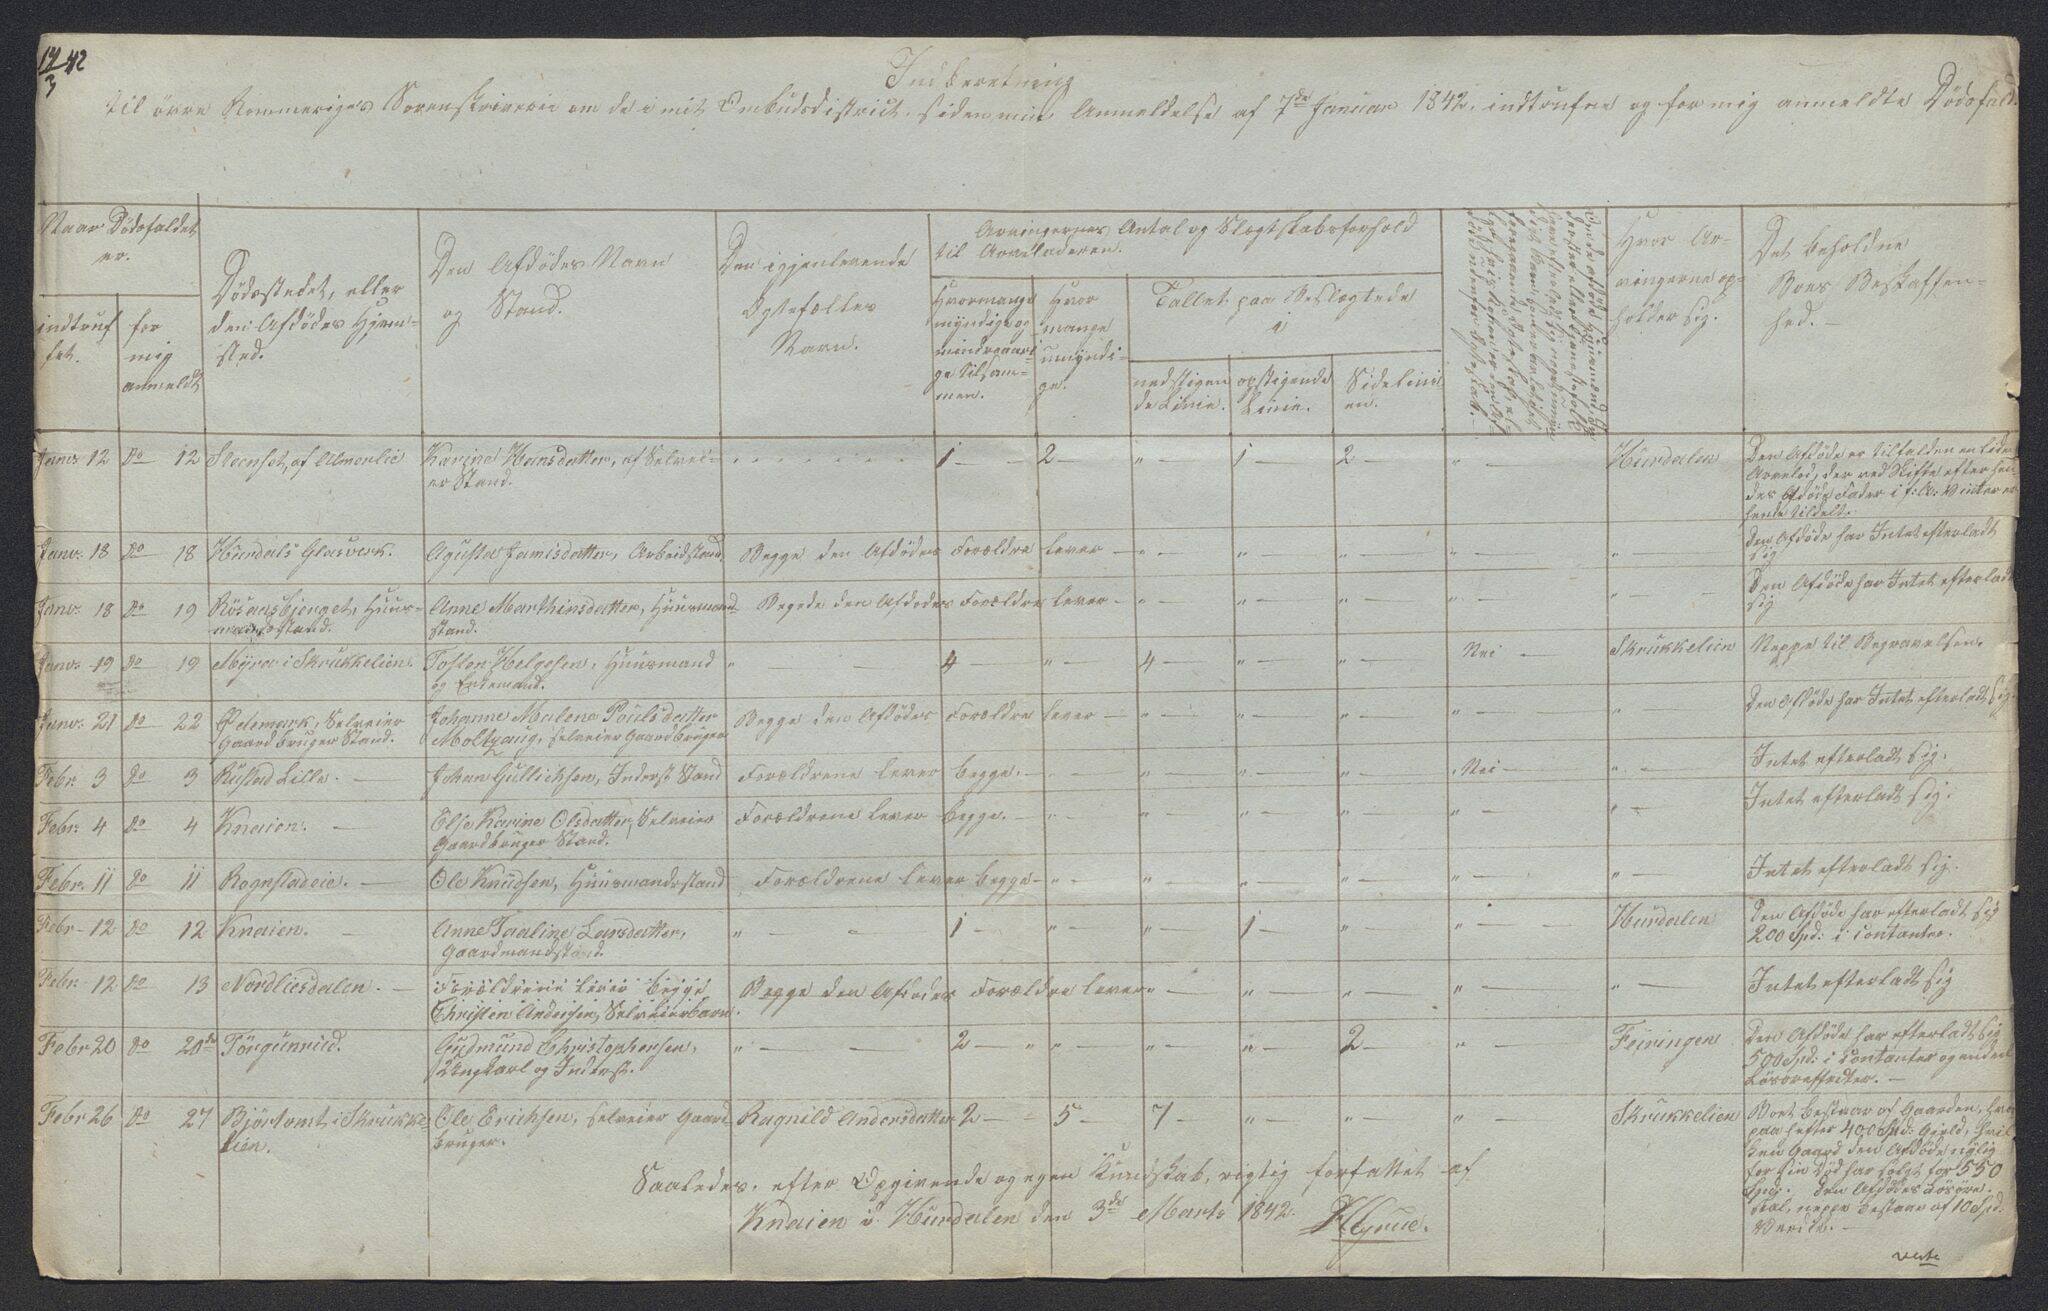 14/3 42
Indberetning
til övre Rommeriges Sorenskriverie om de i mit Ombudsdistrict, siden min Anmeldelse af 7de Januar 1842, indtrufne og for mig anmeldte Dödsfald.
Naar Dödsfaldet er.
indtruffet.
for mig anmeldt
Dödsstedet, eller den Afdödes Hjemsted.
Den Afdödes Navn og Stand.
Den igjenlevende Ægtefælles Navn.
Arvingernes Antal og Slægtskabsforhold til Arveladeren.
Hvormange myndige og mindreaarige tilsammen.
Hvor mange umyndige.
Tallet paa Beslægtede i
nedstigende Linie.
opstigende Linie.
Sidelinien.
Hvor Arvingerne opholder sig.
Det beholdne Boes Beskaffenhed. —
Janv 12 do 12 Steenset, af Almenlie Karine Hansdatter, af Selveier Stand. 1 — 2 — " — 1 — 2 — " — Hurdalen Den Afdöde er tilfalden en liden Arvelod, der ved Skifte efter hendes Afdöde Fader i f: A: Vinter er hende tildelt.
Janv. 18 do 18 Hurdals Glasverk. Agusta Jamisdatter, Arbeidstand. Begge den Afdödes Forældre lever — " — " — " — " — " — Den Afdöde har Intet efterladt sig
Janv. 18 do 19 Rösaasbjerget, Huusmandsstand. Anne Marthinsdatter, Huusmandstand. Begede den Afdödes Forældre lever — " — " — " — " — " — Den Afdöde har Intet efterladt sig
Janv. 19 do 19 Myra i Skrukkelien. Tosten Helgesen, Huusmand og Enkemand. " — 4 — " — 4 — " — " — Nei — Skrukkelien Neppe til Begravelsen.
Janv. 21 do 22 Gjetemark, Selveier Gaardbruger Stand. Johanne Malene Poulsdatter Moltzaug, selveier Gaardbruger Begge den Afdödes Forældre lever — " — " — " — " — " — Den Afdöde har Intet efterladt sig.
Febr. 3 do 3 Rustad Lille. — Johan Gullichsen, Inderst Stand Forældrene lever begge. — " — " — " — " Nei — " — Intet efterladt sig.
Febr. 4 do 4 Knaien. — Else Karine Olsdatter, Selveier Gaardbruger Stand. Forældrene lever begge. — " — " — " — " — " — Intet efterladt sig.
Febr. 11 do 11 Rognstadeie. — Ole Knudsen, Huusmandsstand Forældrene lever begge — " — " — " — " — " — Intet efterladt sig.
Febr 12 do 12 Knaien. — Anne Paaline Larsdatter, Gaardmandstand. " — 1 — " — " — 1 — " — " — Hurdalen Den Afdöde har efterladt sig 200 Spd: i contanter.
Febr. 12 do 13 Nordliesdalen. — Forældrene lever begge Christen Andersen, Selveierbarn. Begge den Afdödes Forældre lever " — " — " — " — " — Intet efterladt sig
Febr 20 do 20de Törgunrud. Gudmund Christophersen, Ungkarl og Inderst. " — 2 — " — " — " — 2 — " — Feiringen Den Afdöde har efterladt sig 500 Spd: i contanter og endeel Lösöreffecter. —
Febr 26 do 27 Björtomt i Skrukkelien. Ole Erichsen, selveier Gaardbruger. Ragnild Andersdatter 2 — 5 — 7 — " — " — " — Skrukkelien Boet bestaar af Gaarden, hvorpaa hefter 400 Spd: Gjeld, hvilken Gaard den Afdöde nylig for sin Död har solgt for 550 Spd: Den Afdödes Lösöre neppe bestaar af 10 Spd: Værdie. —
Saaledes, efter Opgivende og egen Kundskab, rigtig forfattet af
Knaien i Hurdalen den 3de Marts 1842. HGrue.